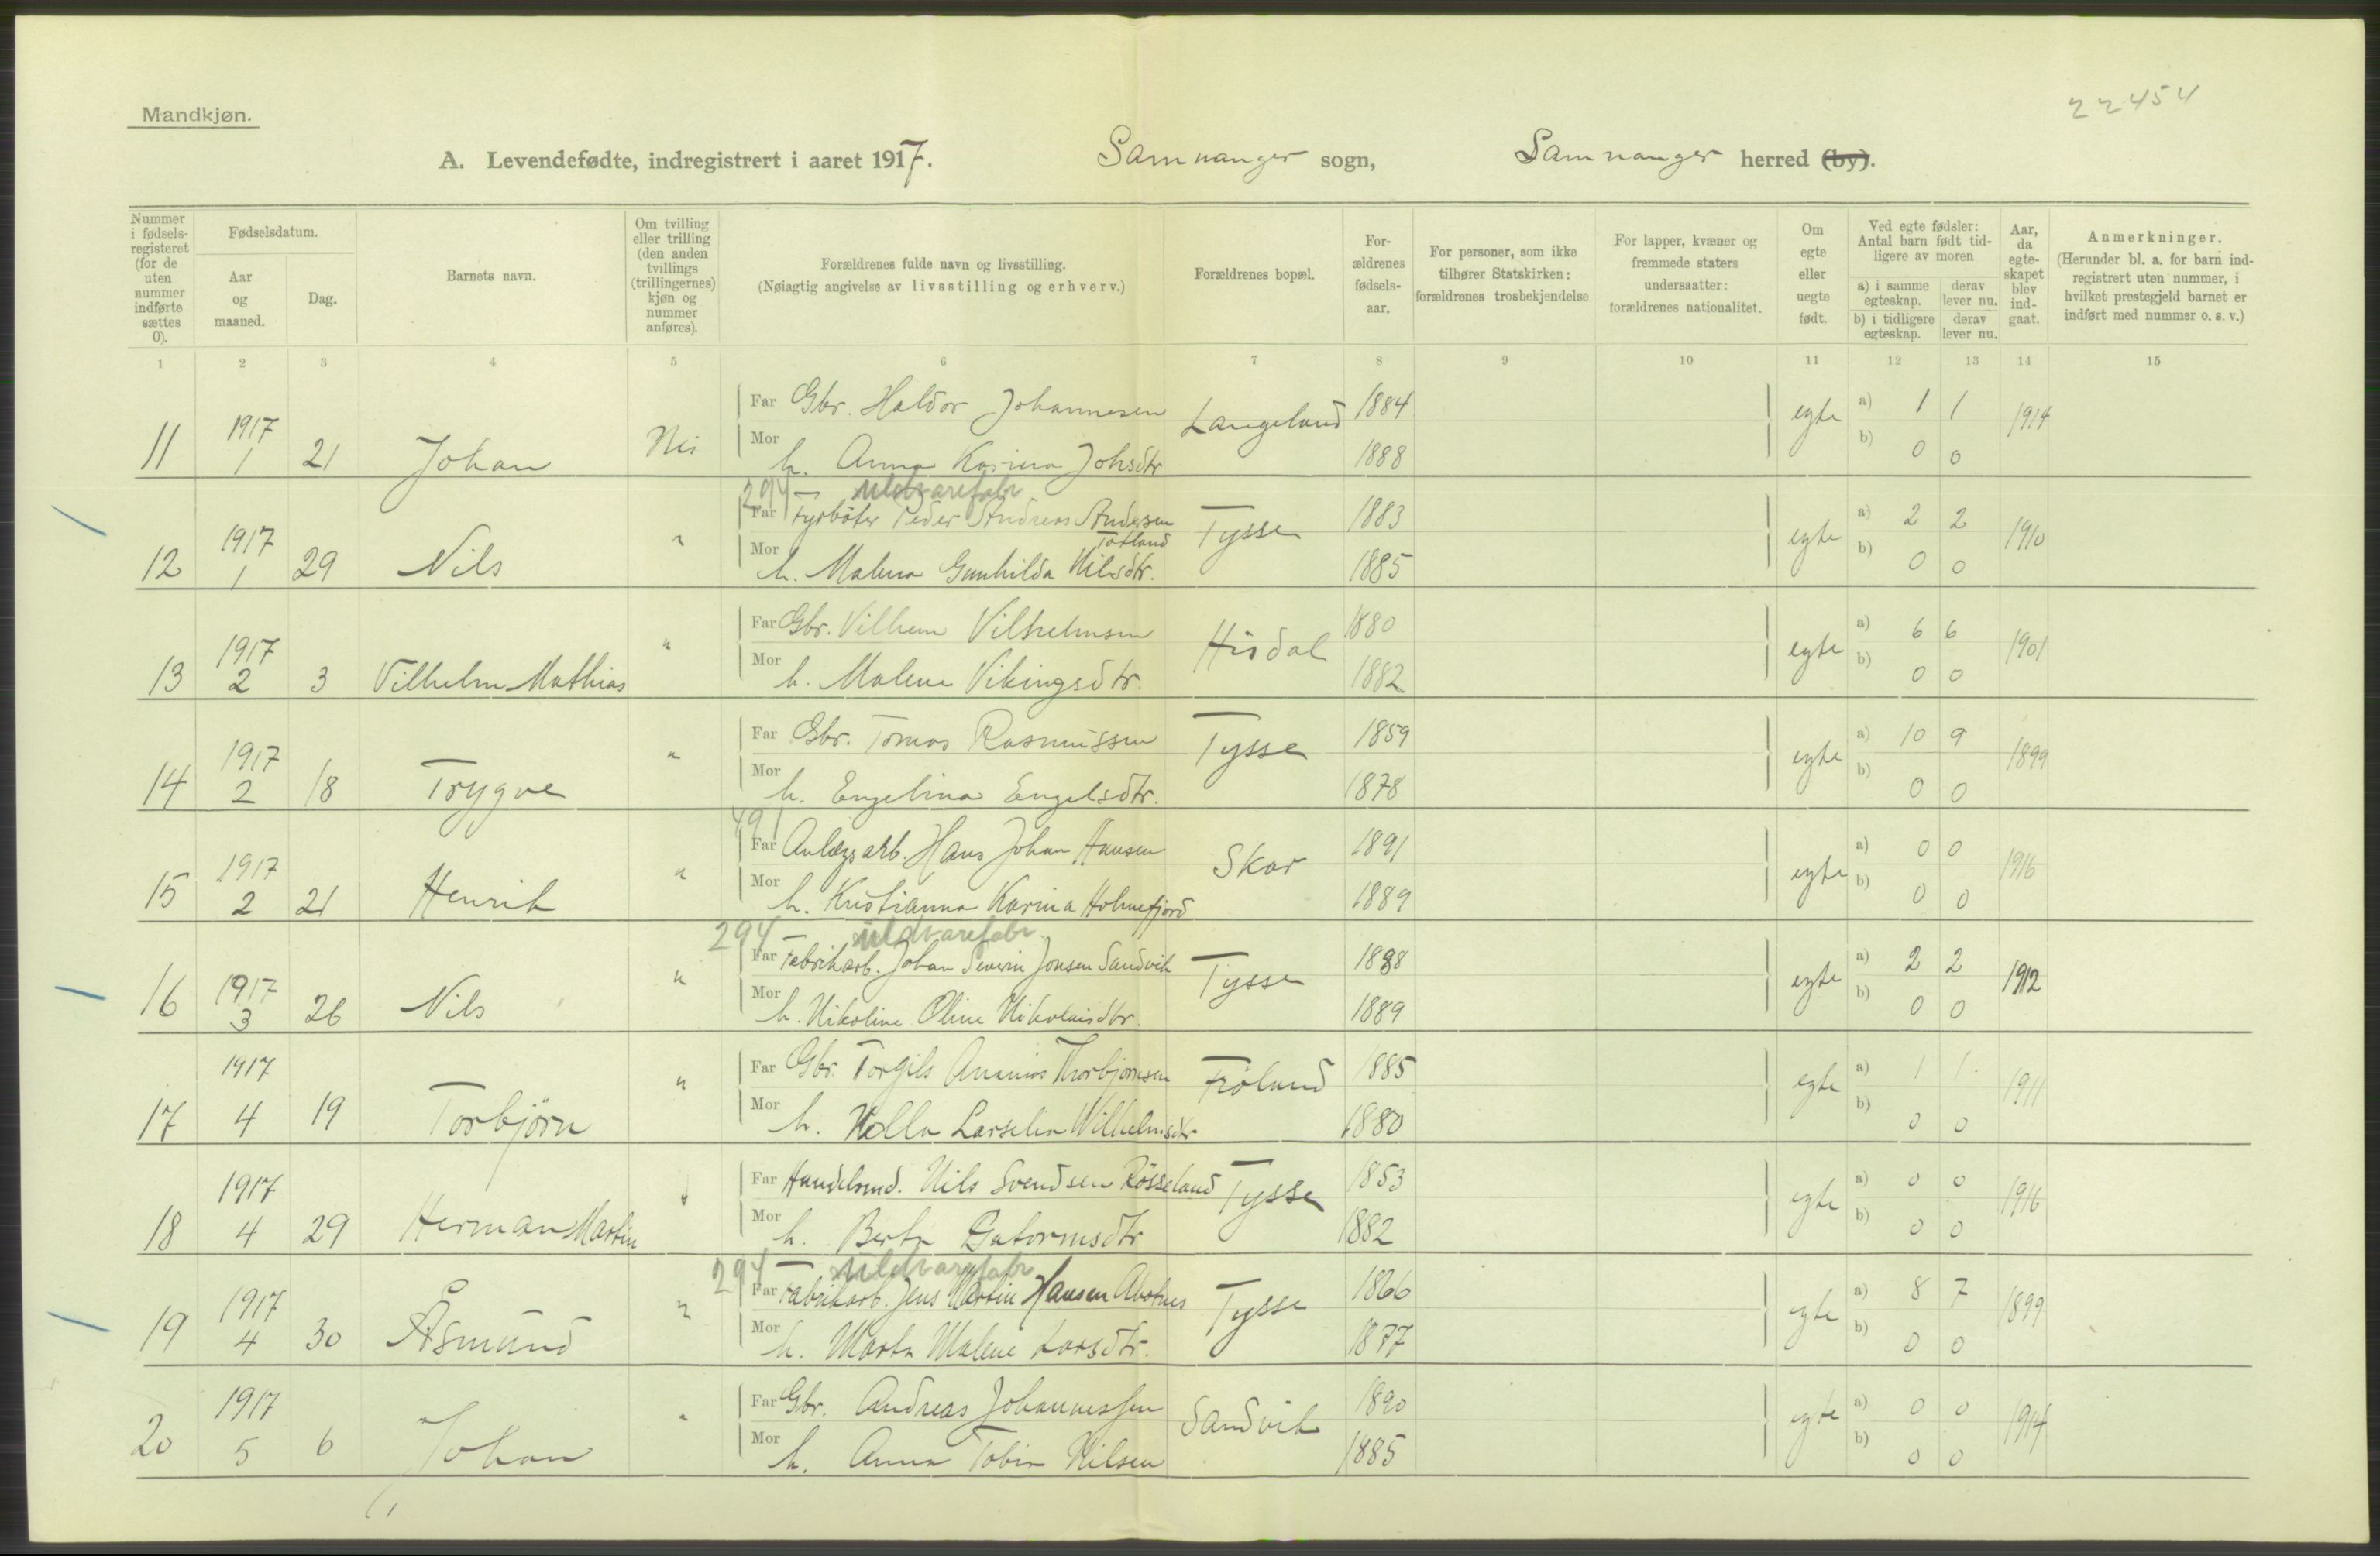 22454
Mandkjøn.
A. Levendefødte, indregistrert i aaret 1917. Samnanger sogn, Samnanger herred (by).
Nummer i fødsels-registeret (for de uten nummer indførte sættes 0).
Fødselsdatum.
Aar og maaned.
Dag.
Barnets navn.
Om tvilling eller trilling (den anden tvillings (trillingernes) kjøn og nummer anføres).
Forældrenes fulde navn og livsstilling.
(Nøiagtig angivelse av livsstilling og erhverv.)
Forældrenes bopæl.
For-ældrenes fødsels-aar.
For personer, som ikke tilhører Statskirken: forældrenes trosbekjendelse
For lapper, kvæner og fremmede staters undersaatter: forældrenes nationalitet.
Om egte eller uegte født.
Ved egte fødsler: Antal barn født tid-ligere av moren
a) i samme egteskap. derav lever nu.
b) i tidligere egteskap. derav lever nu.
Aar, da egte-skapet blev ind-gaat.
Anmerkninger.
(Herunder bl. a. for barn ind-registrert uten nummer, i hvilket prestegjeld barnet er indført med nummer o. s. v.)
1 2 3 4 5 6 7 8 9 10 11 12 13 14 15
Far Gbr. Haldor Johannesen Langeland 1884 egte a) 1 1 1914
11 1917 1 21 Johan Nei
Mor h. Anna Karina Johsdtr 1888 b) 0 0
294 uldvarefabr
Far Fyrböter Peder Andreas Andersen Totland Tysse 1883 egte a) 2 2 1910
12 1917 1 29 Nils "
Mor h. Malena Gunhilda Nilsdtr. 1885 b) 0 0
Far Gbr. Vilhem Vilhelmsen Hisdal 1880 egte a) 6 6 1901
13 1917 2 3 Vilhelm Mathias "
Mor h. Malene Vikingsdtr. 1882 b) 0 0
Far Gbr. Tomas Rasmussen Tysse 1859 egte a) 10 9 1899
14 1917 2 18 Trygve "
Mor h. Engelina Engelsdtr. 1878 b) 0 0
491
Far Anlægsarb. Hans Johan Hansen Skar 1891 egte a) 0 0 1916
15 1917 2 21 Henrik "
Mor h. Kristianna Karina Holmefjord 1889 b) 0 0
294 uldvarefabr.
Far Fabrikarb. Johan Severin Jonsen Sandvik Tysse 1888 egte a) 2 2 1912
16 1917 3 26 Nils "
Mor h. Nikoline Oline Nikolaisdtr. 1889 b) 0 0
Far Gbr. Torgils Ananias Thorbjørnsen Fröland 1885 egte a) 1 1 1911
17 1917 4 19 Torbjörn "
Mor h. Larselin Wilhelmsdtr 1880 b) 0 0
Far Handelsmd. Nils Svendsen Rösseland Tysse 1853 egte a) 0 0 1916
18 1917 4 29 Herman Martin "
Mor h. Berta Gutormsdtr 1882 b) 0 0
294 uldvarefabr
Far Fabrikarb. Jens Martin Hansen Tysse 1866 egte a) 8 7 1899
19 1917 4 30 Åsmund "
Mor h. Marta Malene Larsdtr. 1877 b) 0 0
Far Gbr. Andreas Johannessen Sandvik 1890 egte a) 0 0 1914
20 1917 5 6 Johan "
Mor h. Anna Tobia Nilsen 1885 b) 0 0